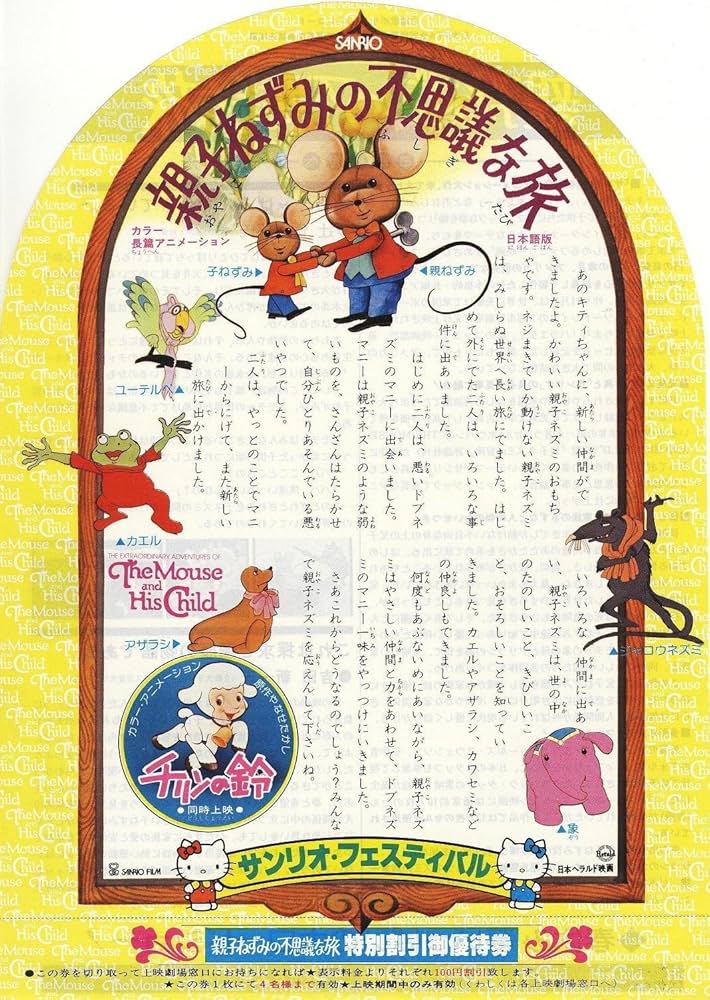 SANRIO
親子ねずみの不思議な旅
おやこ
ふしぎ
たび
カラー
長篇アニメーション
ちょうへん
日本語版
にほんごばん
子ねずみ▶
◀親ねずみ
ユーテル▲
▲カエル
あのキティちゃんに、新しい仲間がで
きましたよ。かわいい親子ネズミのおもち
ゃです。ネジまきでしか動けない親子ネズミ
は、みしらぬ世界へ長い旅にでました。はじ
めて外にでた二人は、いろいろな事
件に出あいました。
はじめに二人は、悪いドブネ
ズミのマニーに出会いました。
マニーは親子ネズミのような弱
いものを、さんざんはたらかせ
て、自分ひとりあそんでいる悪
いやつでした。
二人は、やっとのことでマニ
ーからにげて、また新しい
旅に出かけました。
いろいろな、仲間に出あ
い、親子ネズミは、世の中
のたのしいこと、きびしいこ
と、おそろしいことを知ってい
きました。カエルやアザラシ、カワセミなど
の仲良しもできました。
何度もあぶないめにあいながら、親子ネズ
ミはやさしい仲間と力をあわせて、ドブネズ
ミのマニー一味をやっつけにいきました。
さあこれからどうなるのでしょう？みんな
で親子ネズミを応えんして下さいね。
THE EXTRAORDINARY ADVENTURES OF
The Mouse
and
His Child
アザラシ▶
▲ジャコウネズミ
▲象
ぞう
カラー・アニメーション
原作やなせたかし
チリンの鈴
●同時上映●
SANRIO FILM
サンリオ・フェスティバル
Herald
日本ヘラルド映画
親子ねずみの不思議な旅 特別割引御優待券
●この券を切り取って上映劇場窓口にお持ちになれば★表示料金よりそれぞれ100円割引致します。
★この券1枚にて4名様まで有効★上映期間中のみ有効（くわしくは各上映劇場窓口へ）